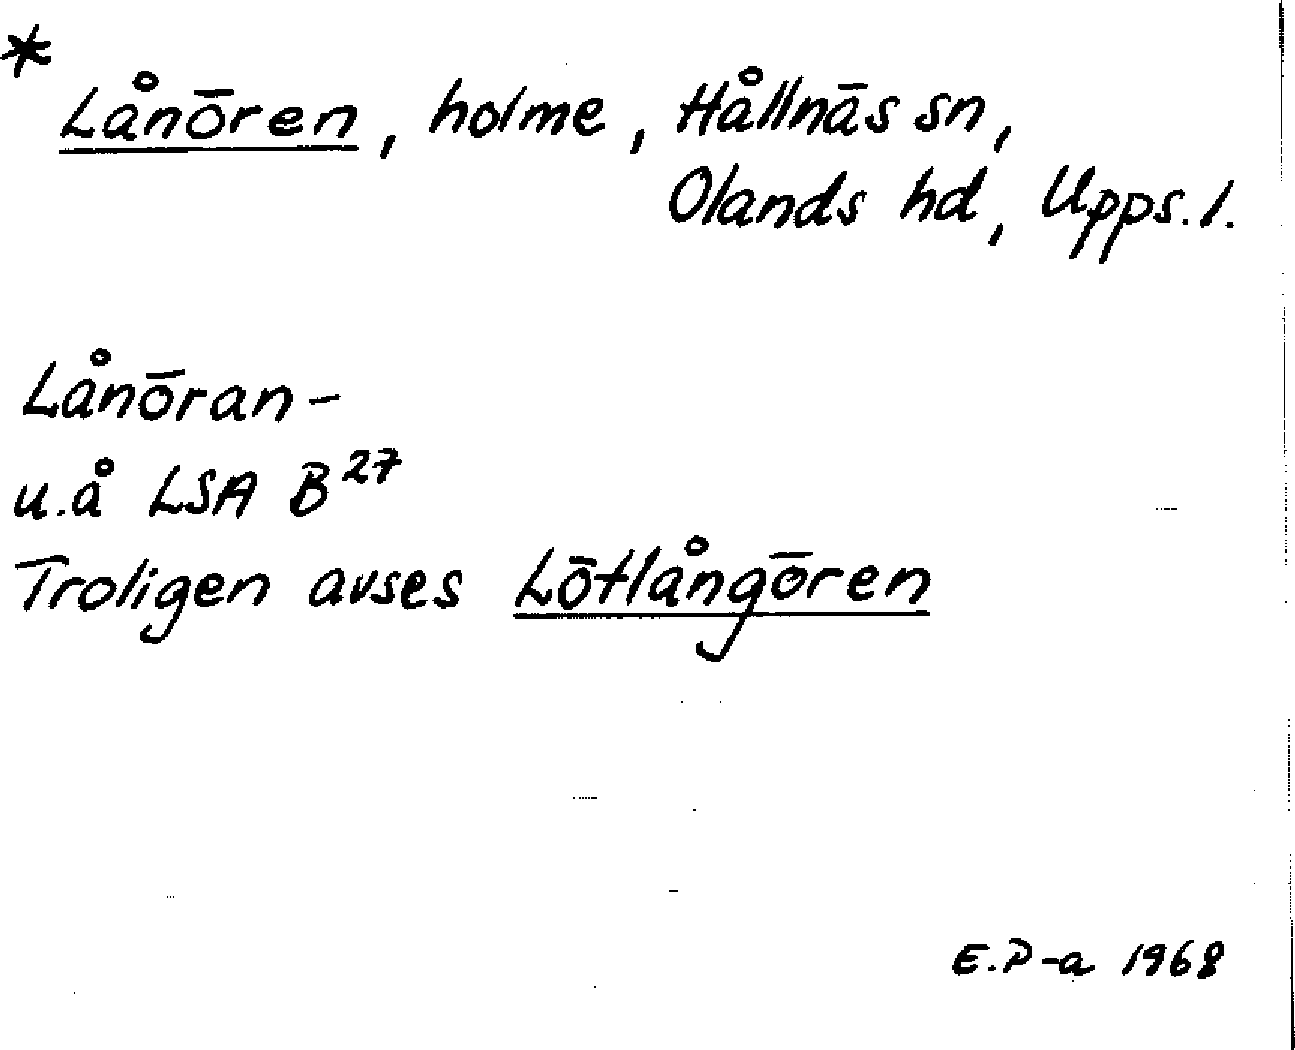 * Lånören, holme, Hållnäs sn,
Olands hd, Upps. l.
Lånöran -
u.å LSA B27
Troligen avses Lötlångören
E.P-a 1968